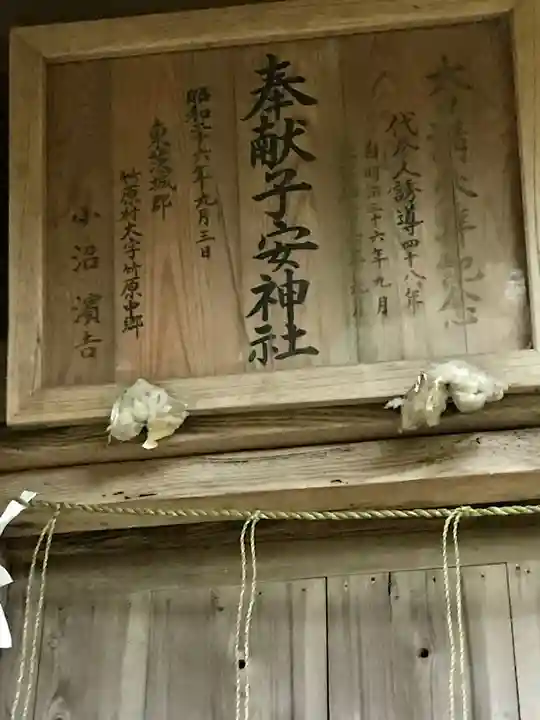 代参人誘導四十八年
自明治三十六年九月
奉献子安神社
昭和二十六年九月三日
東茨城郡
竹原村大字竹原中郷
小沼濱吉